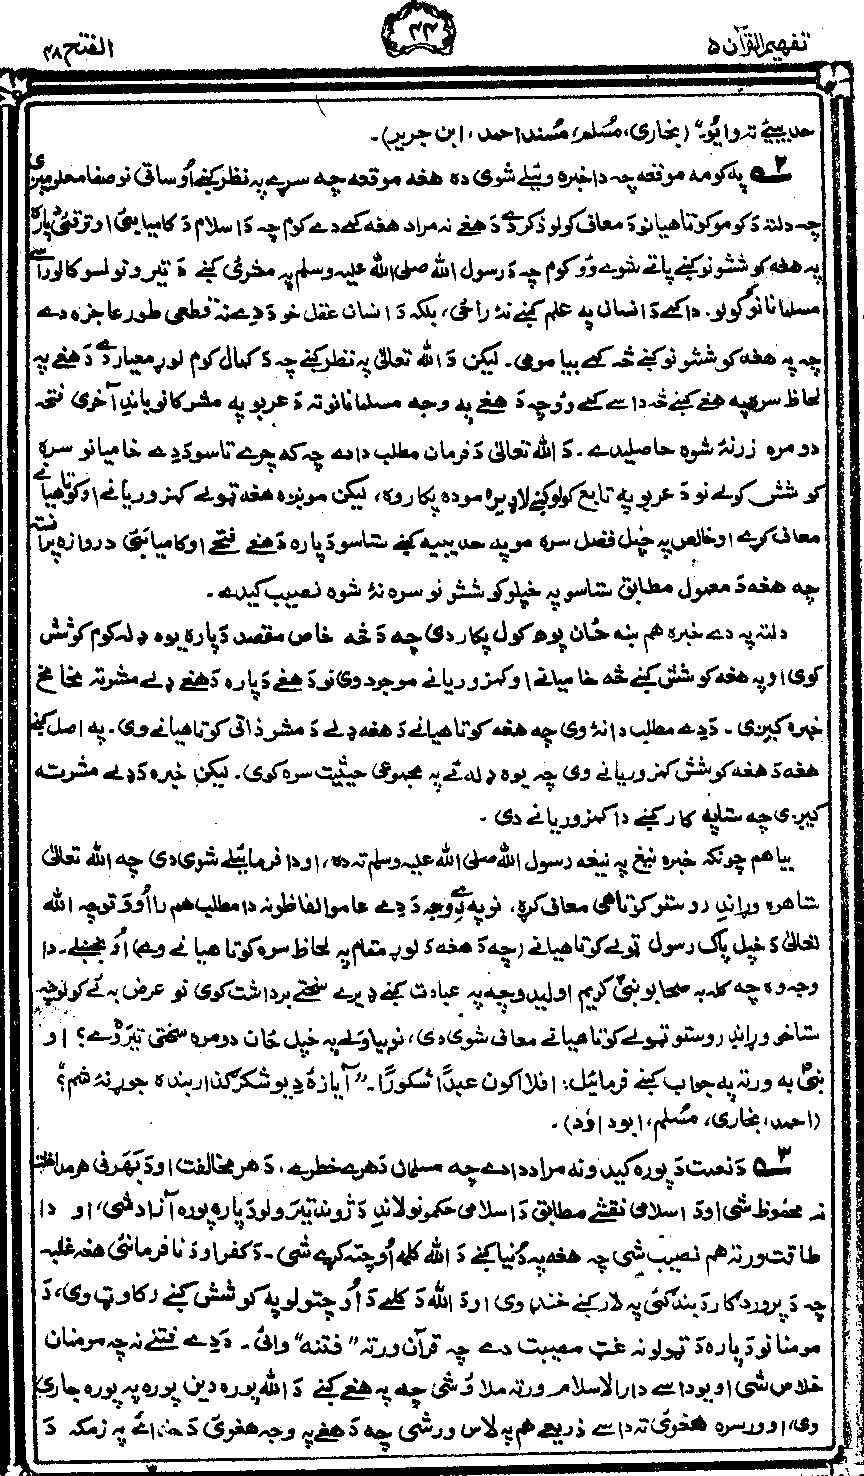 تفهیم القرآن ۵
۴۴
الفتح ۴۸
حدیبیې ته وایو." (بخاری، مُسلم، مُسند احمد، ابن جریر).
۲ په کومه موقعه چه دا خبره ویئلے شوی ده هغه موقعه چه سړے په نظر کښے اُوساتی نو صفا معلومیږی
چه دلته دَ کومو کوتاهیانو دَ معاف کولو ذکر دے دَ هغے نه مراد هغه کمے دے کوم چه دَ اسلام دَ کامیابئ او ترقئ دپاره
په هغه کوششونو کښے پاتے شوے وُو کوم چه دَ رسول الله صلی الله علیه وسلم په مخرئی کښے دَ تیرو نولسو کالو راسے
مسلمانانو کولو. دا کمے دَ انسان په علم کښے نۀ راځی، بلکه دَ انسان عقل خو دَ دے نه قطعی طور عاجزه دے
چه په هغه کوششونو کښے څه کمے بیا مومی. لیکن دَ الله تعالیٰ په نظر کښے چه دَ کمال کوم لوړ معیار دے دَ هغے په
لحاظ سره په هغے کښے څه داسے کمے وو چه دَ هغے په وجه مسلمانانو ته دَ عربو په مشرکانو باندِ آخری فتحه
دومره زر نۀ شوه حاصلیدے. دَ الله تعالیٰ دَ فرمان مطلب دا دے چه که چرے تاسو دَ دے خامیانو سره
کوشش کولے نو دَ عربو په تابع کولو کښے لا ډیره موده پکار وه، لیکن مونږه هغه ټولے کمزوریانے او کوتاهیانے
معاف کړے او خالص په خپل فضل سره مو په حدیبیه کښے ستاسو دپاره دَ هغے فتحے او کامیابئ دروازه پرانسته
چه هغه دَ معمول مطابق ستاسو په خپلو کوششونو سره نۀ شوه نصیب کیدے.
دلته په دے خبره هم ښه ځان پوهه کول پکار دی چه دَ څه خاص مقصد دَپاره یوه ډله کوم کوشش
کوی او په هغه کوشش کښے څه خامیانے او کمزوریانے موجود وی نو دَ هغے دَپاره دَ هغے ډلے مشر ته مخامخ
خبره کیږی. دَ دے مطلب دا نۀ وی چه هغه کوتاهیانے دَ هغه ډلے دَ مشر ذاتی کوتاهیانے وی. په اصل کښے
هغه دَ هغه کوشش کمزوریانے وی چه یوه ډله ئے په مجموعی حیثیت سره کوی. لیکن خبره دَ ډلے مشر ته
کیږی چه ستا په کار کښے دا کمزوریانے دی.
بیا هم چونکه خبره نیغ په نیغه رسول الله صلی الله علیه وسلم ته ده، او دا فرمائیلے شوی دی چه الله تعالیٰ
ستا هره وړاندِ روستو کوتاهی معاف کړه، نو په دے وجه دَ دے عامو الفاظو نه دا مطلب هم رااُووتو چه الله
تعالیٰ دَ خپل پاک رسول ټولے کوتاهیانے (چه دَ هغه دَ لوړ مقام په لحاظ سره کوتاهیانے وے) اُوبخښلے. دا
وجه وه چه کله به صحابو نبی کریم اولیدو چه په عبادت کښے ډیرے سختے برداشت کوی نو عرض به ئے کولو چه
ستا خو وړاندِ روستو ټولے کوتاهیانے معافی شوی دی، نو بیا ولے په خپل ځان دومره سختی تیروے؟ او
نبیؐ به ورته په جواب کښے فرمائیل: افلا اکون عبدًا شکورًا. "آیا زۀ دِ یو شکر گذار بنده جوړ نۀ شم؟
(احمد، بخاری، مُسلم، ابوداوٗد).
۳ دَ نعمت دَ پوره کیدو نه مراد دا دے چه مسلمان دَ هرے خطرے، دَ هر مخالفت او دَ بهرنی هر مداخلته
نه محفوظ شی او دَ اسلامی نقشے مطابق دَ اسلامی حکمونو لاندِ دَ ژوند تیرولو دَپاره پوره آزاد شی، او دا
طاقت ورته هم نصیب شی چه هغه په دُنیا کښے دَ الله کلمه اُوچته کړے شی. دَ کفر او دَ نافرمانئ هغه غلبه
چه دَ پروردګار دَ بندګئ په لار کښے خنډ وی او دَ الله دَ کلمے دَ اُوچتولو په کوشش کښے رکاوټ وی، دَ
مومنانو دَپاره دَ ټولو نه غټ مصیبت دے چه قرآن ورته "فتنه" وائی. دَ دے فتنے نه چه مومنان
خلاص شی او یو داسے دارالاسلام ورته ملاؤ شی چه په هغے کښے دَ الله پوره دین پوره په پوره جاری
وی، او ورسره هغوئ ته داسے ذریعے هم په لاس ورشی چه دَ هغے په وجه هغوئ دَ خدائے په زمکه دَ